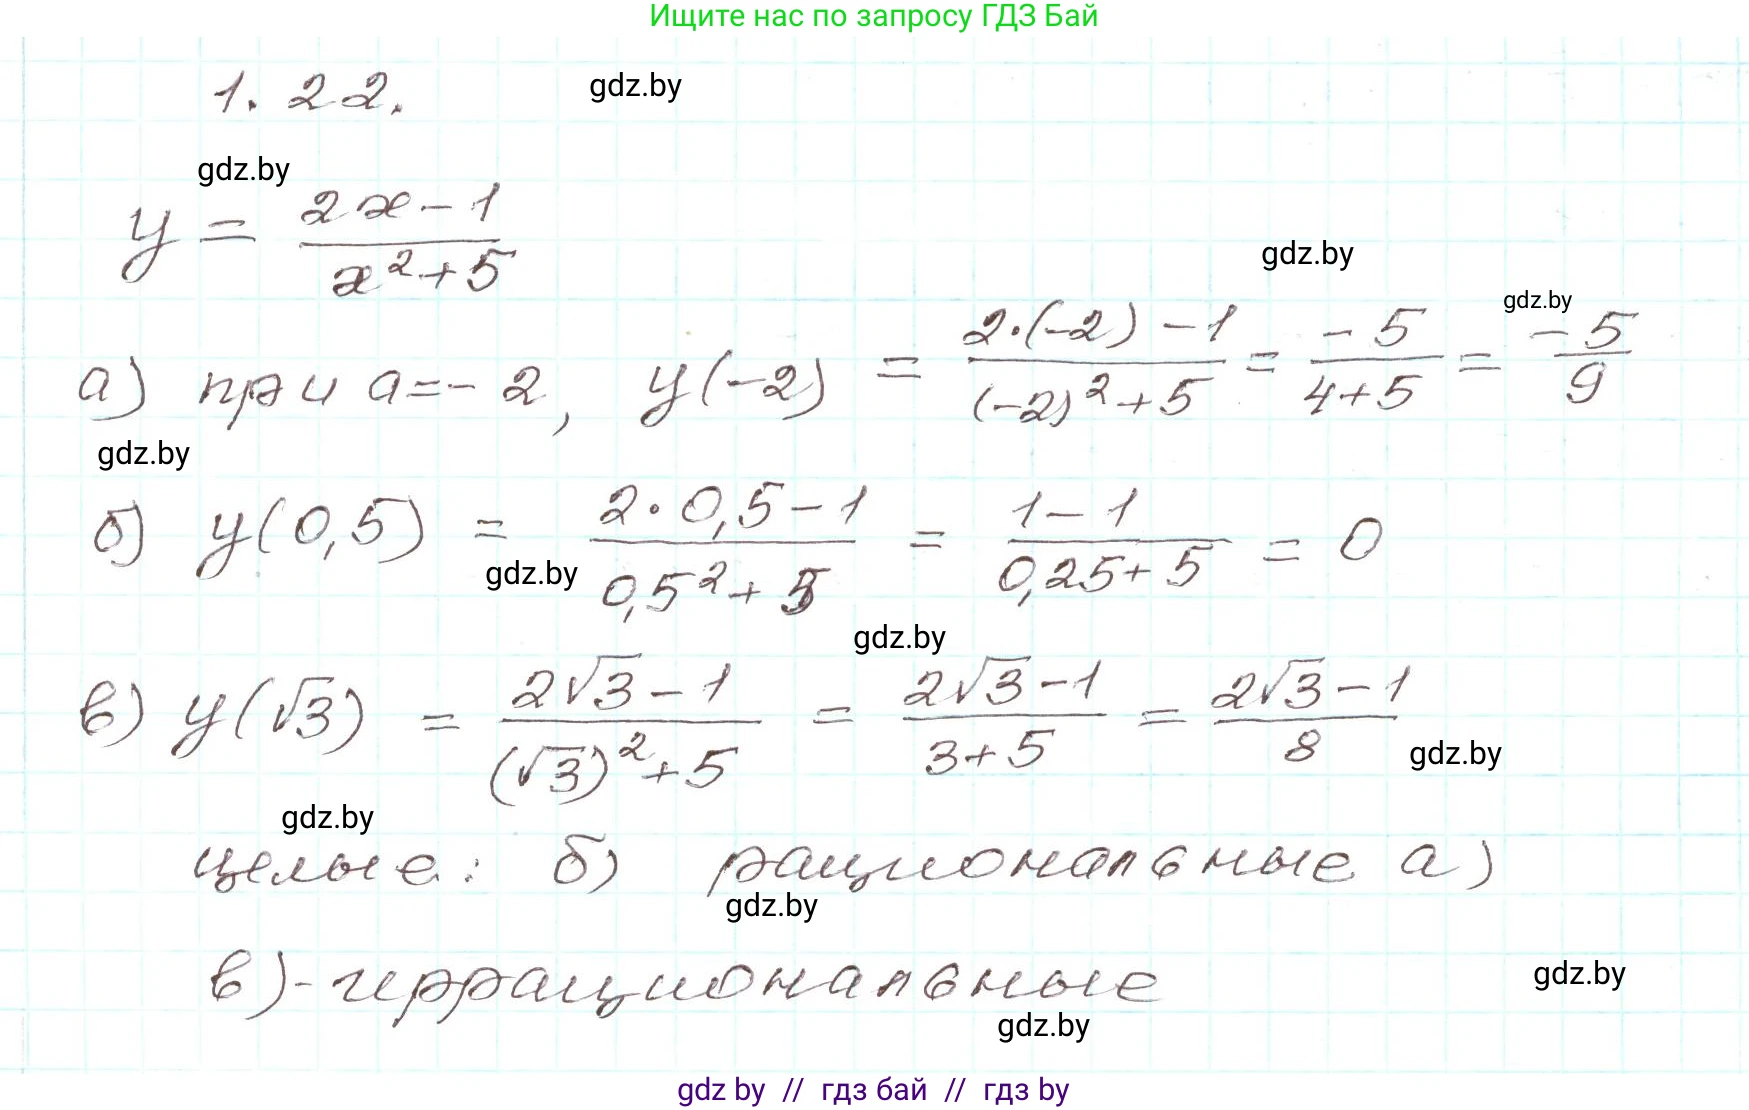 Ищите нас по запросу ГДЗ Бай
1.22. gdz.by
gdz.by
y = (2x - 1)/(x² + 5)
gdz.by
gdz.by
а) при a = - 2, y(-2) = (2·(-2) - 1)/((-2)² + 5) = (- 5)/(4 + 5) = (- 5)/9
gdz.by
б) y(0,5) = (2 · 0,5 - 1)/(0,5² + 5) = (1 - 1)/(0,25 + 5) = 0
gdz.by
gdz.by
в) y(√3) = (2√3 - 1)/((√3)² + 5) = (2√3 - 1)/(3 + 5) = (2√3 - 1)/8
gdz.by
gdz.by
целые: б) рациональные а)
gdz.by
в) - иррациональные
gdz.by
gdz.by
gdz by // гдз бай // гдз by